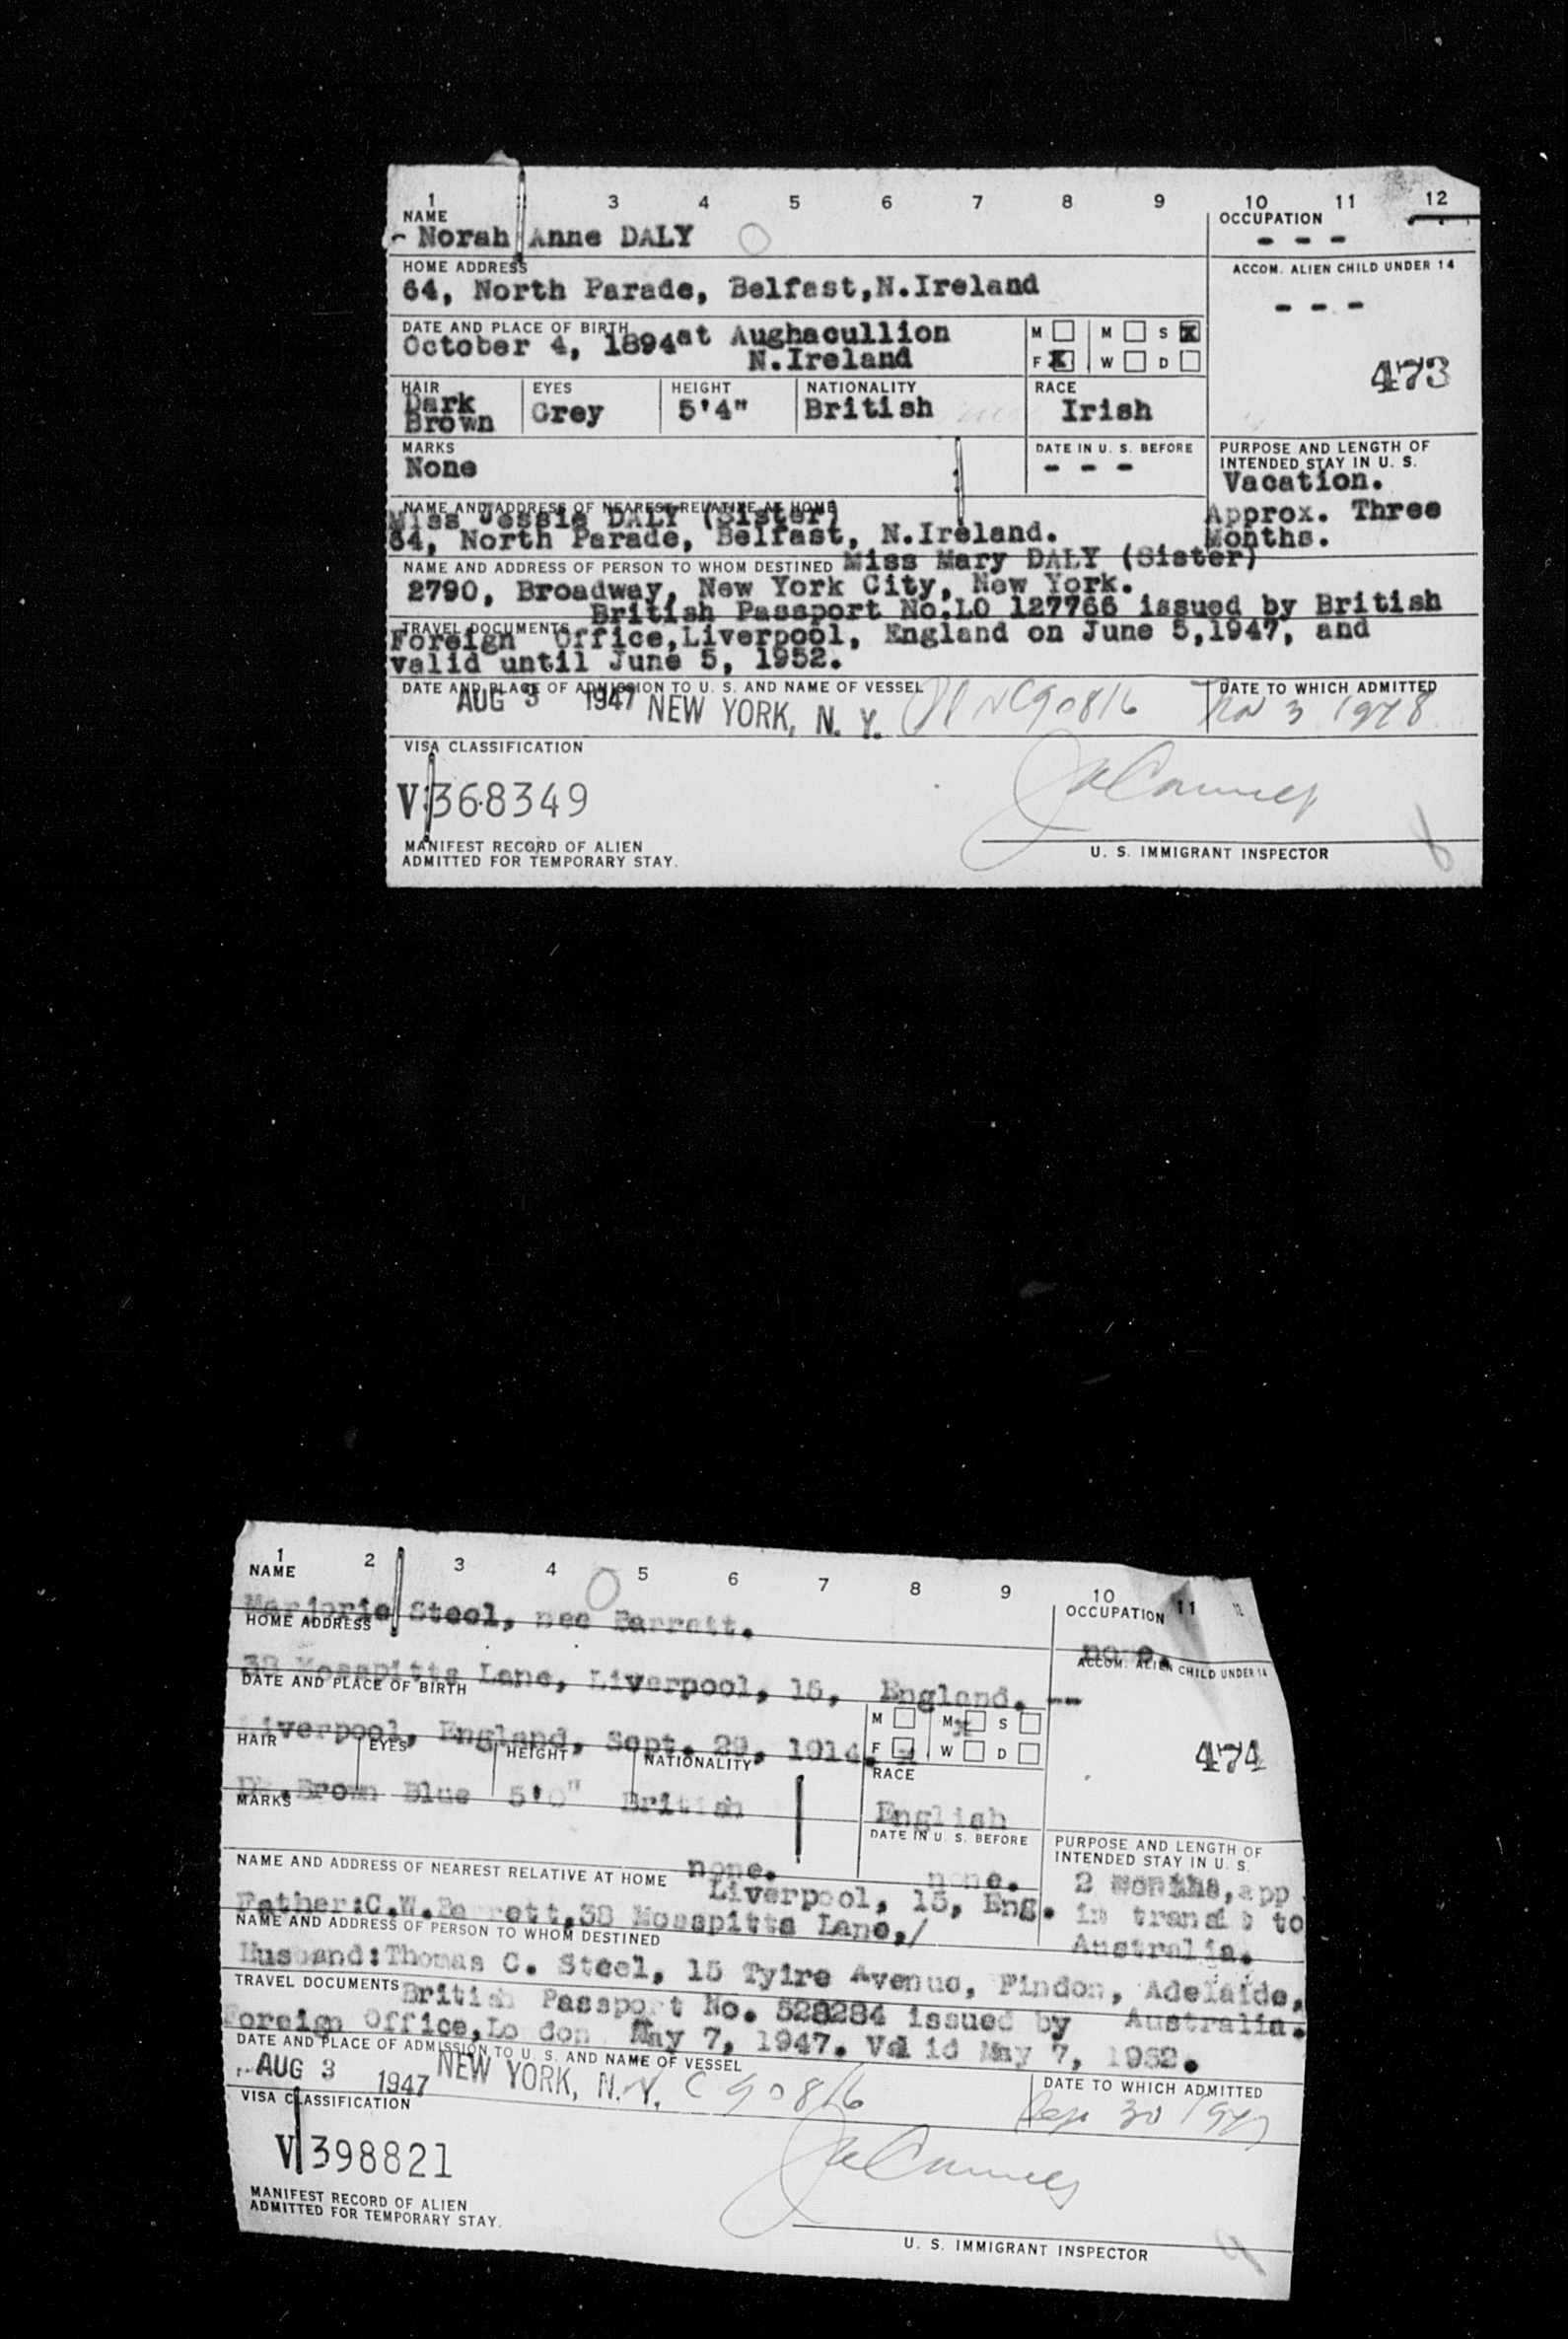 1 3 4 5 6 7 8 9 10 11 12
NAME
Norah Anne DALY
OCCUPATION
- - -
HOME ADDRESS
64, North Parade, Belfast,N.Ireland
ACCOM. ALIEN CHILD UNDER 14
- - -
DATE AND PLACE OF BIRTH
October 4, 1894 at Aughacullion
N.Ireland
M M S X
F X W D
473
HAIR EYES HEIGHT NATIONALITY RACE
Dark Brown Grey 5'4" British Irish
MARKS
None
DATE IN U. S. BEFORE
- - -
PURPOSE AND LENGTH OF
INTENDED STAY IN U. S.
Vacation.
Approx. Three
Months.
NAME AND ADDRESS OF NEAREST RELATIVE AT HOME
Miss Jessie DALY (Sister)
64, North Parade, Belfast, N.Ireland.
NAME AND ADDRESS OF PERSON TO WHOM DESTINED Miss Mary DALY (Sister)
2790, Broadway, New York City, New York.
British Passport No.LO 127766 issued by British
TRAVEL DOCUMENTS
Foreign Office,Liverpool, England on June 5,1947, and
valid until June 5, 1952.
DATE AND PLACE OF ADMISSION TO U. S. AND NAME OF VESSEL
AUG 3 1947 NEW YORK, N. Y. C90816
DATE TO WHICH ADMITTED
3 1948
VISA CLASSIFICATION
V 368349
MANIFEST RECORD OF ALIEN
ADMITTED FOR TEMPORARY STAY.
U. S. IMMIGRANT INSPECTOR
1 2 3 4 5 6 7 8 9 10 11
NAME
Marjorie Steel, nee Barrett.
OCCUPATION
none.
HOME ADDRESS
38 Mosspitts Lane, Liverpool, 15, England.
ACCOM. ALIEN CHILD UNDER 14
--
DATE AND PLACE OF BIRTH
Liverpool, England, Sept. 29, 1914.
M M x S
F x W D
474
HAIR EYES HEIGHT NATIONALITY RACE
Dk.Brown Blue 5'0" British English
MARKS
none.
DATE IN U. S. BEFORE
none.
PURPOSE AND LENGTH OF
INTENDED STAY IN U. S.
2 months,app.
in transit to
Australia.
NAME AND ADDRESS OF NEAREST RELATIVE AT HOME
Liverpool, 15, Eng.
Father:C.W.Barrett,38 Mosspitts Lane,/
NAME AND ADDRESS OF PERSON TO WHOM DESTINED
Husband:Thomas C. Steel, 15 Tyire Avenue, Findon, Adelaide,
Australia.
TRAVEL DOCUMENTS
British Passport No. 528284 issued by
Foreign Office,London May 7, 1947. Valid May 7, 1952.
DATE AND PLACE OF ADMISSION TO U. S. AND NAME OF VESSEL
AUG 3 1947 NEW YORK, N. Y. C 90816
DATE TO WHICH ADMITTED
30 1947
VISA CLASSIFICATION
V 398821
MANIFEST RECORD OF ALIEN
ADMITTED FOR TEMPORARY STAY.
U. S. IMMIGRANT INSPECTOR